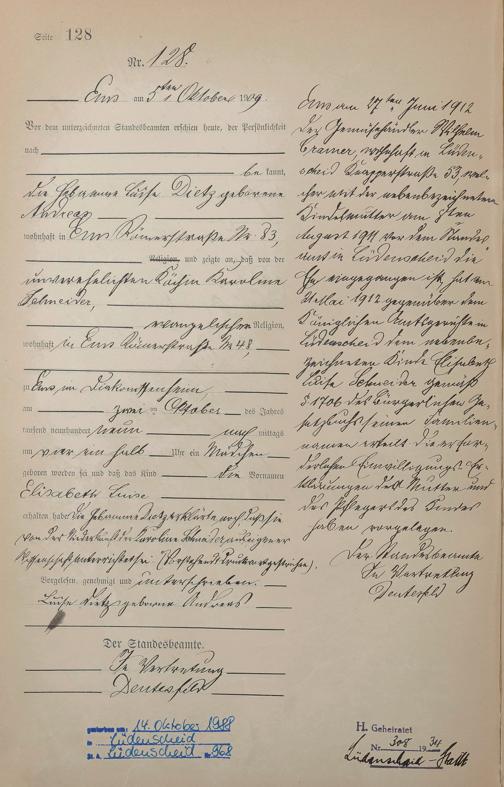 Seite 128
Nr. 128.
Ems am 5ten Oktober 1909.
Vor dem unterzeichneten Standesbeamten erschien heute, der Persönlichkeit
nach
be kannt,
die Hebamme Luise Dietz geborene
Andreas
wohnhaft in Ems Römerstraße Nr. 83,
Religion, und zeigte an, daß von der
unverehelichten Köchin Karolina
Schneider,
evangelischer Religion,
wohnhaft in Ems Römerstraße Nr 48,
zu Ems, im Diakonissenheim,
am zwei ten Oktober des Jahres
tausend neunhundert neun nach mittags
um vier ein halb Uhr ein Mädchen
geboren worden sei und daß das Kind die Vornamen
Elisabeth Luise
erhalten habe. Die Hebamme Dietz erklärte noch, daß sie
von der Niederkunft der Karolina Schneider aus eigener
Wissenschaft unterrichtet sei.
Vorgelesen, genehmigt und unterschrieben.
Luise Dietz geborene Andreas
Der Standesbeamte.
In Vertretung
Ems am 27ten Juni 1912
Der Gemüsehändler Wilhelm
Cramer, wohnhaft in Lüden-
scheid Knapperstraße 53, wel-
cher mit der nebenbezeichneten
Kindesmutter am
August 1911 vor dem Standes-
amt in Lüdenscheid die
Ehe eingegangen ist, hat am
Mai 1912 gegenüber dem
Königlichen Amtsgerichte in
Lüdenscheid dem nebenbe-
zeichneten Kinde Elisabeth
Luise Schneider gemäß
§ 1706 des Bürgerlichen Ge-
setzbuchs seinen Familien-
namen erteilt die erfor-
derlichen Einwilligungs-Er-
klärungen der Mutter und
des Pflegers des Kindes
haben vorgelegen.
Der Standesbeamte
In Vertretung
gestorben am: 14. Oktober 1988
in Lüdenscheid
St. A. Lüdenscheid Nr. 968
H. Geheiratet
Nr. 308 1934
Lüdenscheid - Stadt